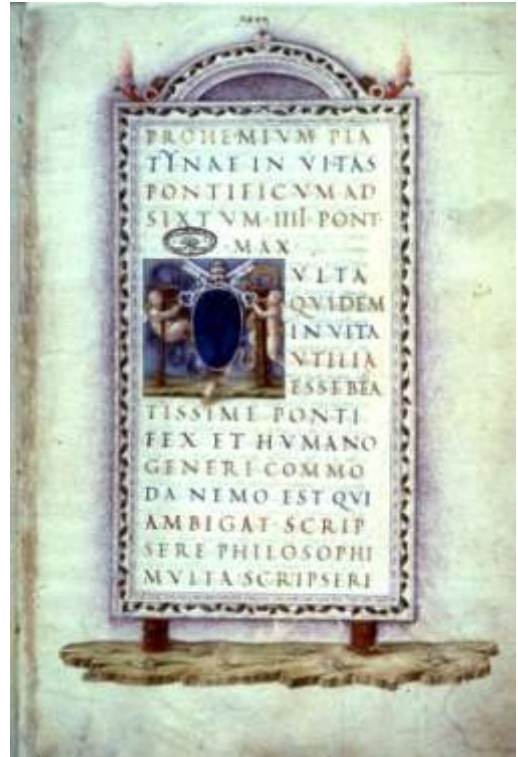 PROHEMIVM PLA
TYNAE IN VITAS
PONTIFICVM AD
SIXTVM · IIII · PONT·
· MAX ·
VLTA
QVIDEM
IN VITA
VTILIA
ESSE BEA
TISSIME PONTI
FEX ET HVMANO
GENERI COMMO
DA NEMO EST QVI
AMBIGAT · SCRIP
SERE PHILOSOPHI
MVLTA · SCRIPSERE